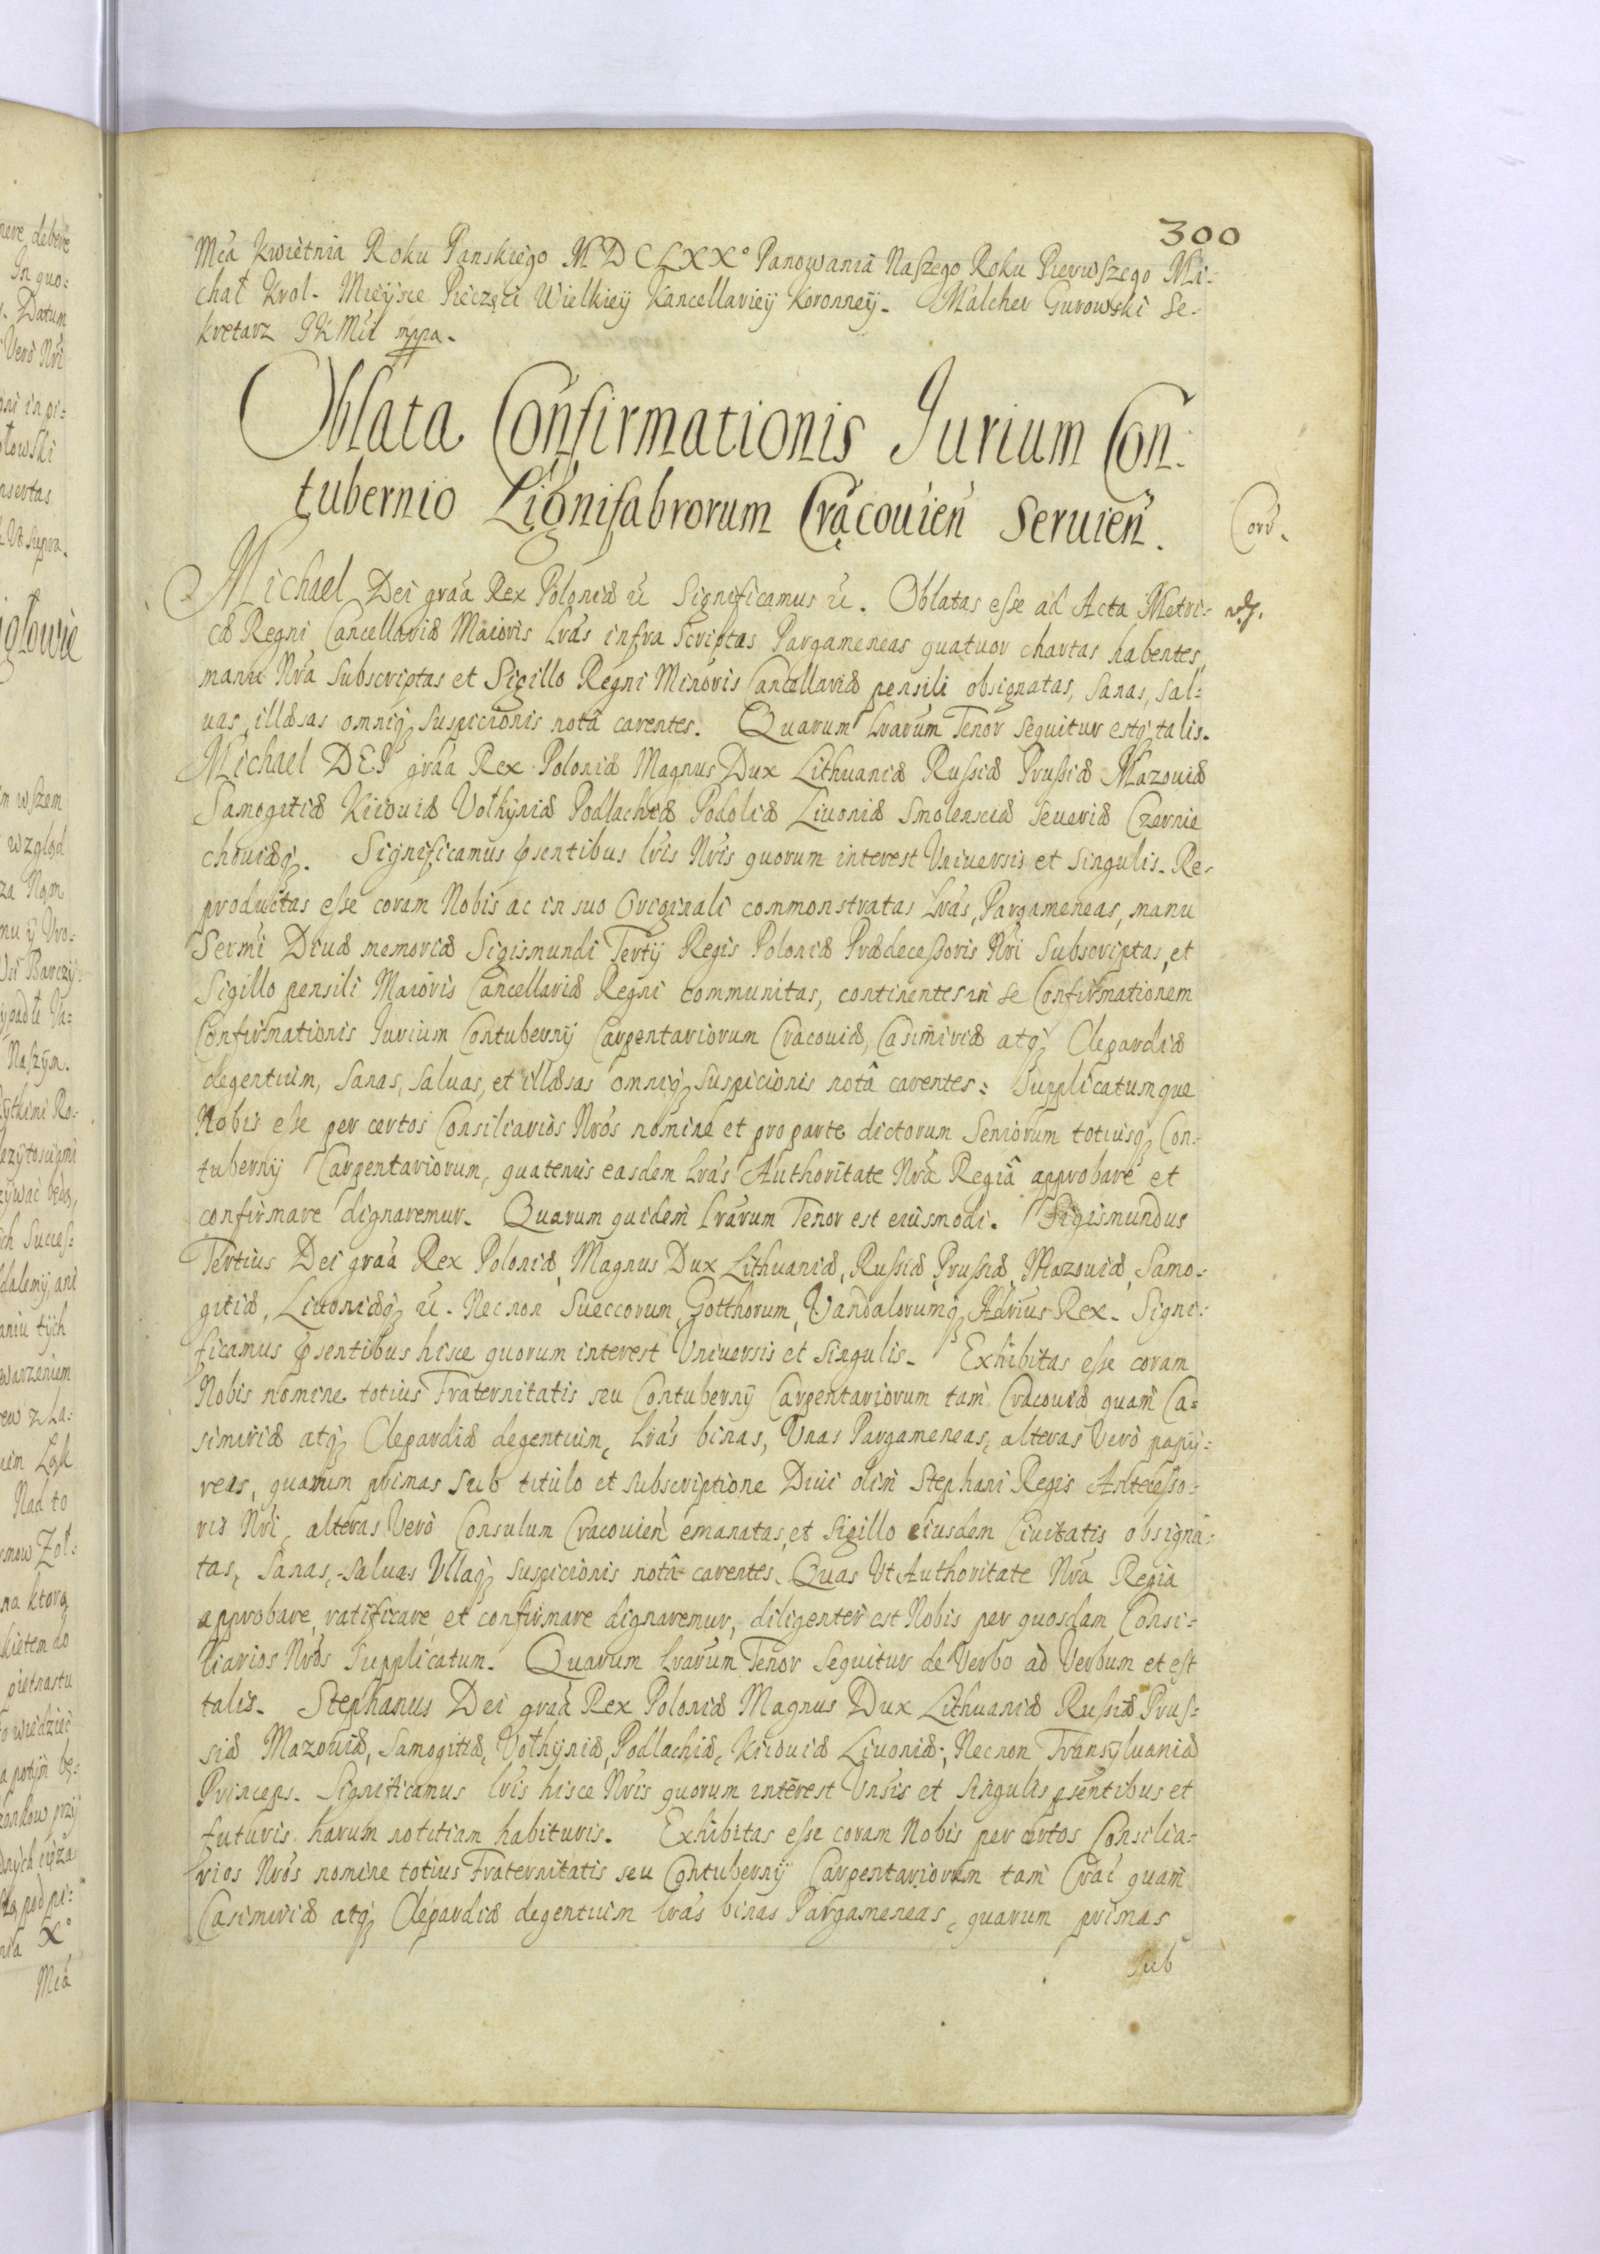 300
Mca Kwietnia Roku Panskiego MDCLXX° Panowania Naszego Roku Pierwszego Mi-
chał Krol. Mieysce Pieczęci Wielkiey Kancellariey Koronney. Malcher Gurowski Se-
kretarz JKMci mppa.
Oblata Confirmationis Jurium Con-
tubernio Lignifabrorum Cracouien Seruien.
Corr.
Michael Dei graa Rex Poloniæ &c Significamus &c. Oblatas esse ad Acta Metri-
cæ Regni Cancellariæ Maioris Lras infra Scriptas Pargameneas quatuor chartas habentes,
manu Nra Subscriptas et Sigillo Regni Minoris Cancellariæ pensili obsignatas, sanas, sal-
uas, illæsas omniq suspicionis notâ carentes. Quarum Lrarum Tenor sequitur estq talis.
Michael DEI graa Rex Poloniæ Magnus Dux Lithuaniæ Russiæ Prussiæ Mazouiæ
Samogitiæ Kiiouiæ Vołhyniæ Podlachiæ Podoliæ Liuoniæ Smolensciæ Seueriæ Czernie
chouiæq. Significamus psentibus lris Nris quorum interest Vniuersis et Singulis. Re-
productas esse coram Nobis ac in suo Originali commonstratas Lras, Pargameneas, manu
Sermi Diuæ memoriæ Sigismundi Tertij Regis Poloniæ Prædecessoris Nri Subscriptas, et
Sigillo pensili Maioris Cancellariæ Regni communitas, continentes in se Confirmationem
Confirmationis Jurium Contubernij Carpentariorum Cracouiæ, Casimiriæ atq Clepardiæ
degentium, sanas, saluas, et illæsas omniq suspicionis notâ carentes: Supplicatumque
Nobis esse per certos Consiliarios Nros nomine et pro parte dictorum Seniorum totiusq Con-
tubernij Carpentariorum, quatenus easdem Lras Authoritate Nra Regiâ approbare et
confirmare dignaremur. Quarum quidem Lrarum Tenor est eiusmodi. Sigismundus
Tertius Dei graa Rex Poloniæ, Magnus Dux Lithuaniæ, Russiæ, Prussiæ, Mazouiæ, Samo-
gitiæ, Liuoniæq &c. Nec non Sueccorum, Gotthorum, Vandalorumq Hærius Rex. Signi-
ficamus psentibus hisce quorum interest Vniuersis et Singulis. Exhibitas esse coram
Nobis nomine totius Fraternitatis seu Contubernij Carpentariorum tam Cracouiæ quam Ca-
simiriæ atq Clepardiæ degentium, Lras binas, Vnas Pargameneas, alteras Vero papij-
reas, quarum primas sub titulo et subscriptione Diui olim Stephani Regis Antecesso-
ris Nri, alteras Vero Consulum Cracouien emanatas, et Sigillo eiusdem Ciuitatis obsigna-
tas, sanas, saluas Vllaq suspicionis notâ carentes. Quas Vt Authoritate Nra Regia
approbare, ratificare et confirmare dignaremur, diligenter est Nobis per quosdam Consi-
liarios Nros Supplicatum. Quarum Lrarum Tenor Sequitur de Verbo ad Verbum et est
talis. Stephanus Dei graa Rex Poloniæ Magnus Dux Lithuaniæ Russiæ Prus-
siæ Mazouiæ, Samogitiæ, Vołhyniæ, Podlachiæ, Kiiouiæ Liuoniæ, Nec non Transyluaniæ
Princeps. Significamus lris hisce Nris quorum interest Vnsis et Singulis psentibus et
futuris harum notitiam habituris. Exhibitas esse coram Nobis per certos Consilia-
rios Nros nomine totius Fraternitatis seu Contubernij Carpentariorum tam Crac quam
Casimiriæ atq Clepardiæ degentium lras binas Pargameneas, quarum primas
sub